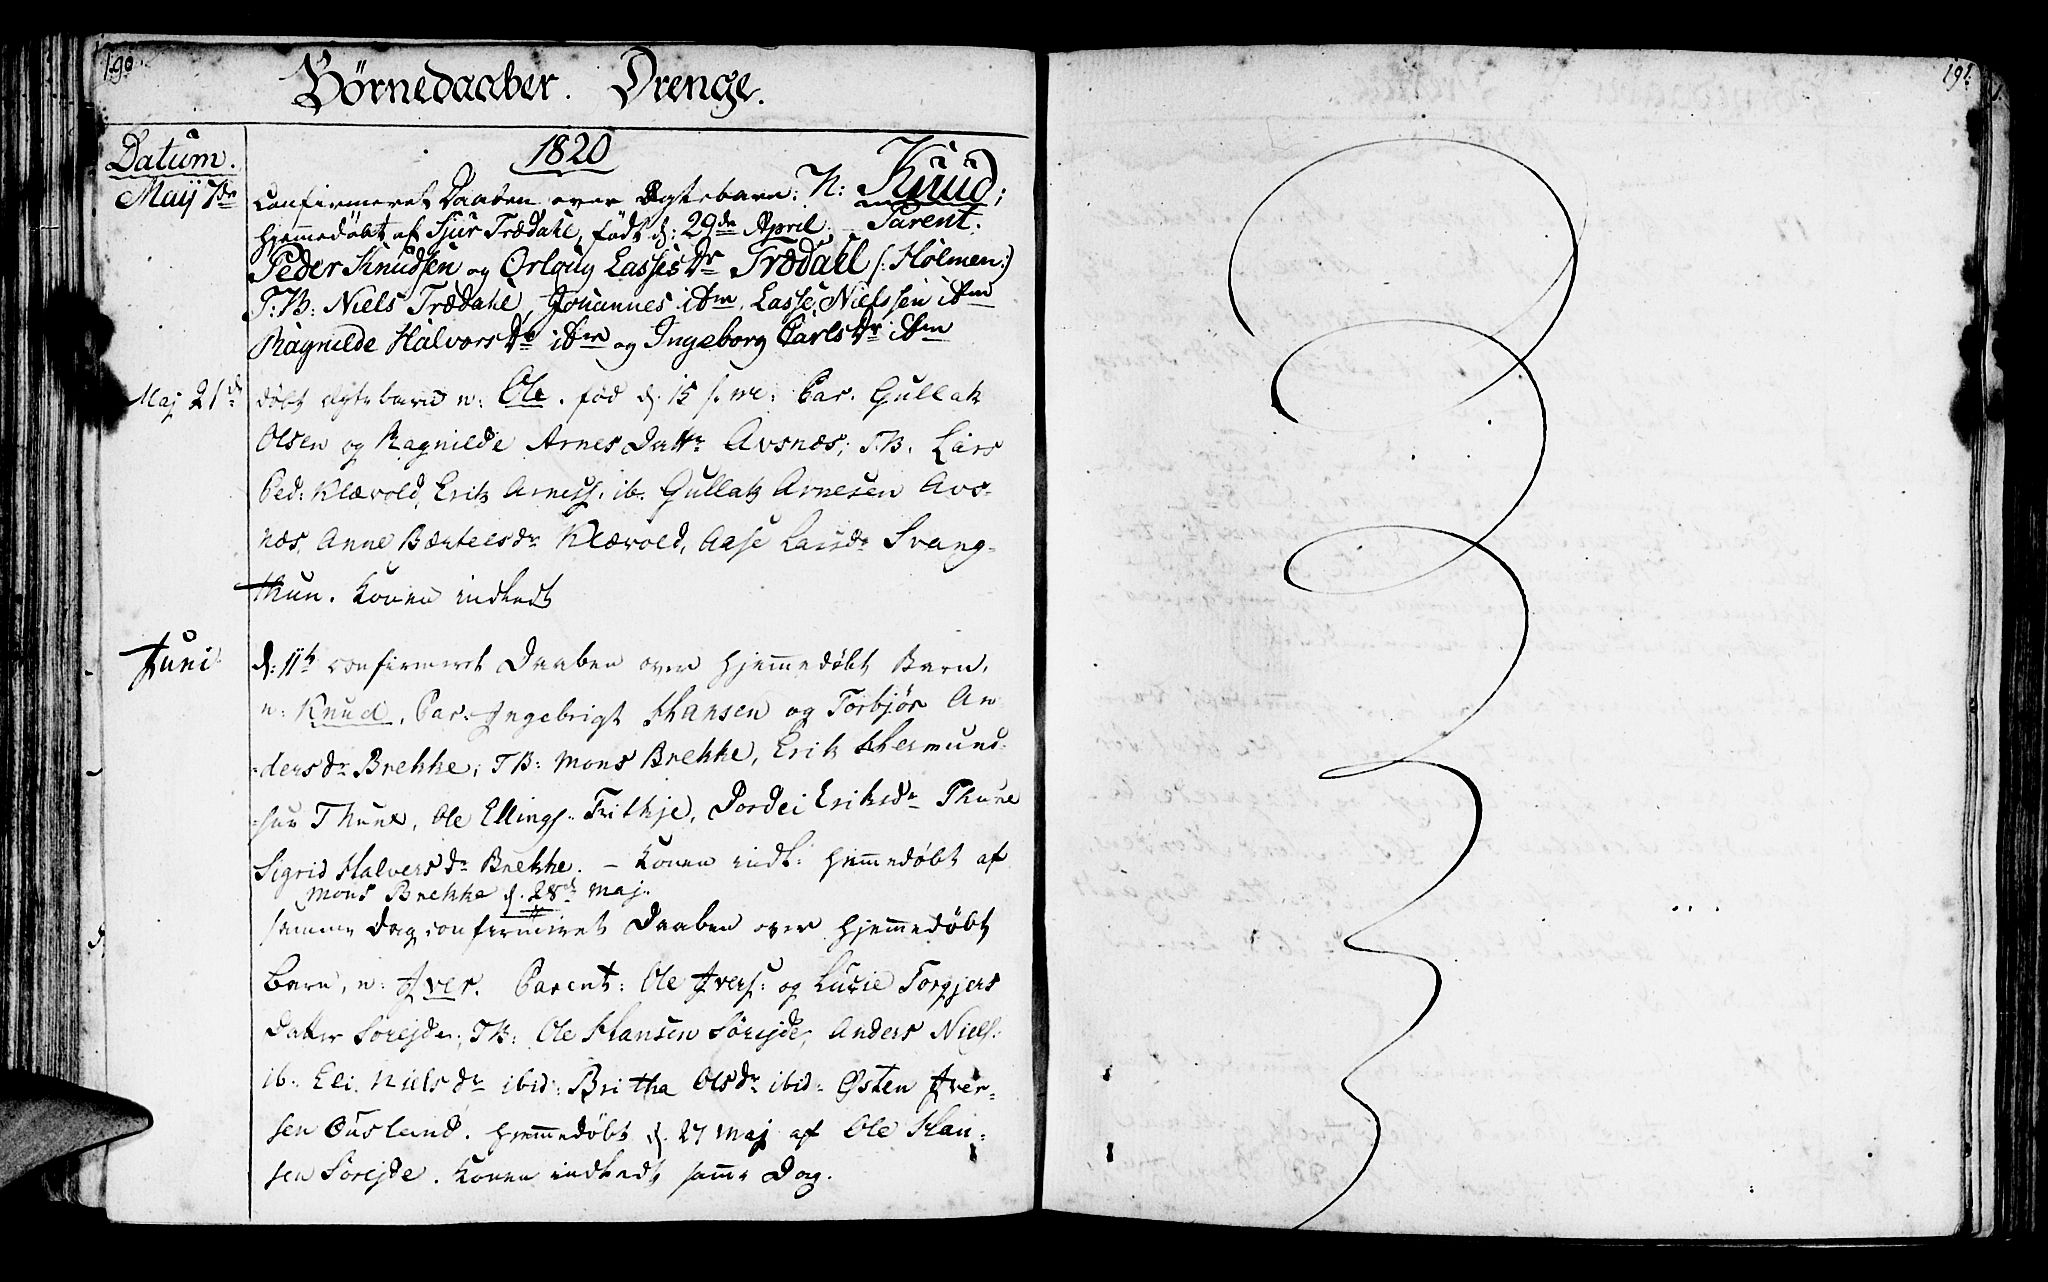 190
Börnedaaber. Drenge.
Datum.
1820
Maij 7de
Confirmeret Daaben over Ægtebarn: N: Knud;
hjemmedöbt af Sjur Trædahl, födt d: 29de April. Parent.
Peder Knudsen og Orlaug Lassesdr Trædall (:Holmen:)
T:B: Niels Trædahl, Johannes itm, Lasse Nielssen itm
Ragnilde Halvorsdr itm og Ingeborg Carlsdr itm
Maj 21d
döbt Ægtebarn n: Ole. föd d. 15 s. m: Par. Gullak
Olsen og Ragnilde Arnes Dattr Avsnæs; T.B. Lars
Ped: Klævold, Erik Arness. ib. Gullak Arnesen Avs-
næs, Anne Bærtelsdr Klævold, Aase Larsdr Svang-
thun. Konen indledt
Juni
d: 11te confirmeret Daaben over hjemmedöbt Barn,
n: Knud, Par. Ingebrigt Hansen og Torbjör An
-dersdr Brekke; TB: Mons Brekke, Erik Hermund-
-sen Thune, Ole Ellings. Frithje, Dordei Eriksdr Thune
Sigrid Halversdr Brekke. - Konen indl: hjemmedöbt af
Mons Brekke d. 28de Maj.
samme Dag confirmeret Daaben over hjemmedöbt
Barn, n: Iver. Parent: Ole Ivers: og Lucie Torgjers
Datter Sörejde; TB: Ole Hansen Sörejde, Anders Niels:
ib. Eli Nielsdr ibid: Britha Olsdr ibid: Østen Iver-
sen Ousland. hjemmedöbt d. 27 Maj af Ole Han-
sen Sörejde. Konen indledt samme Dag.
191